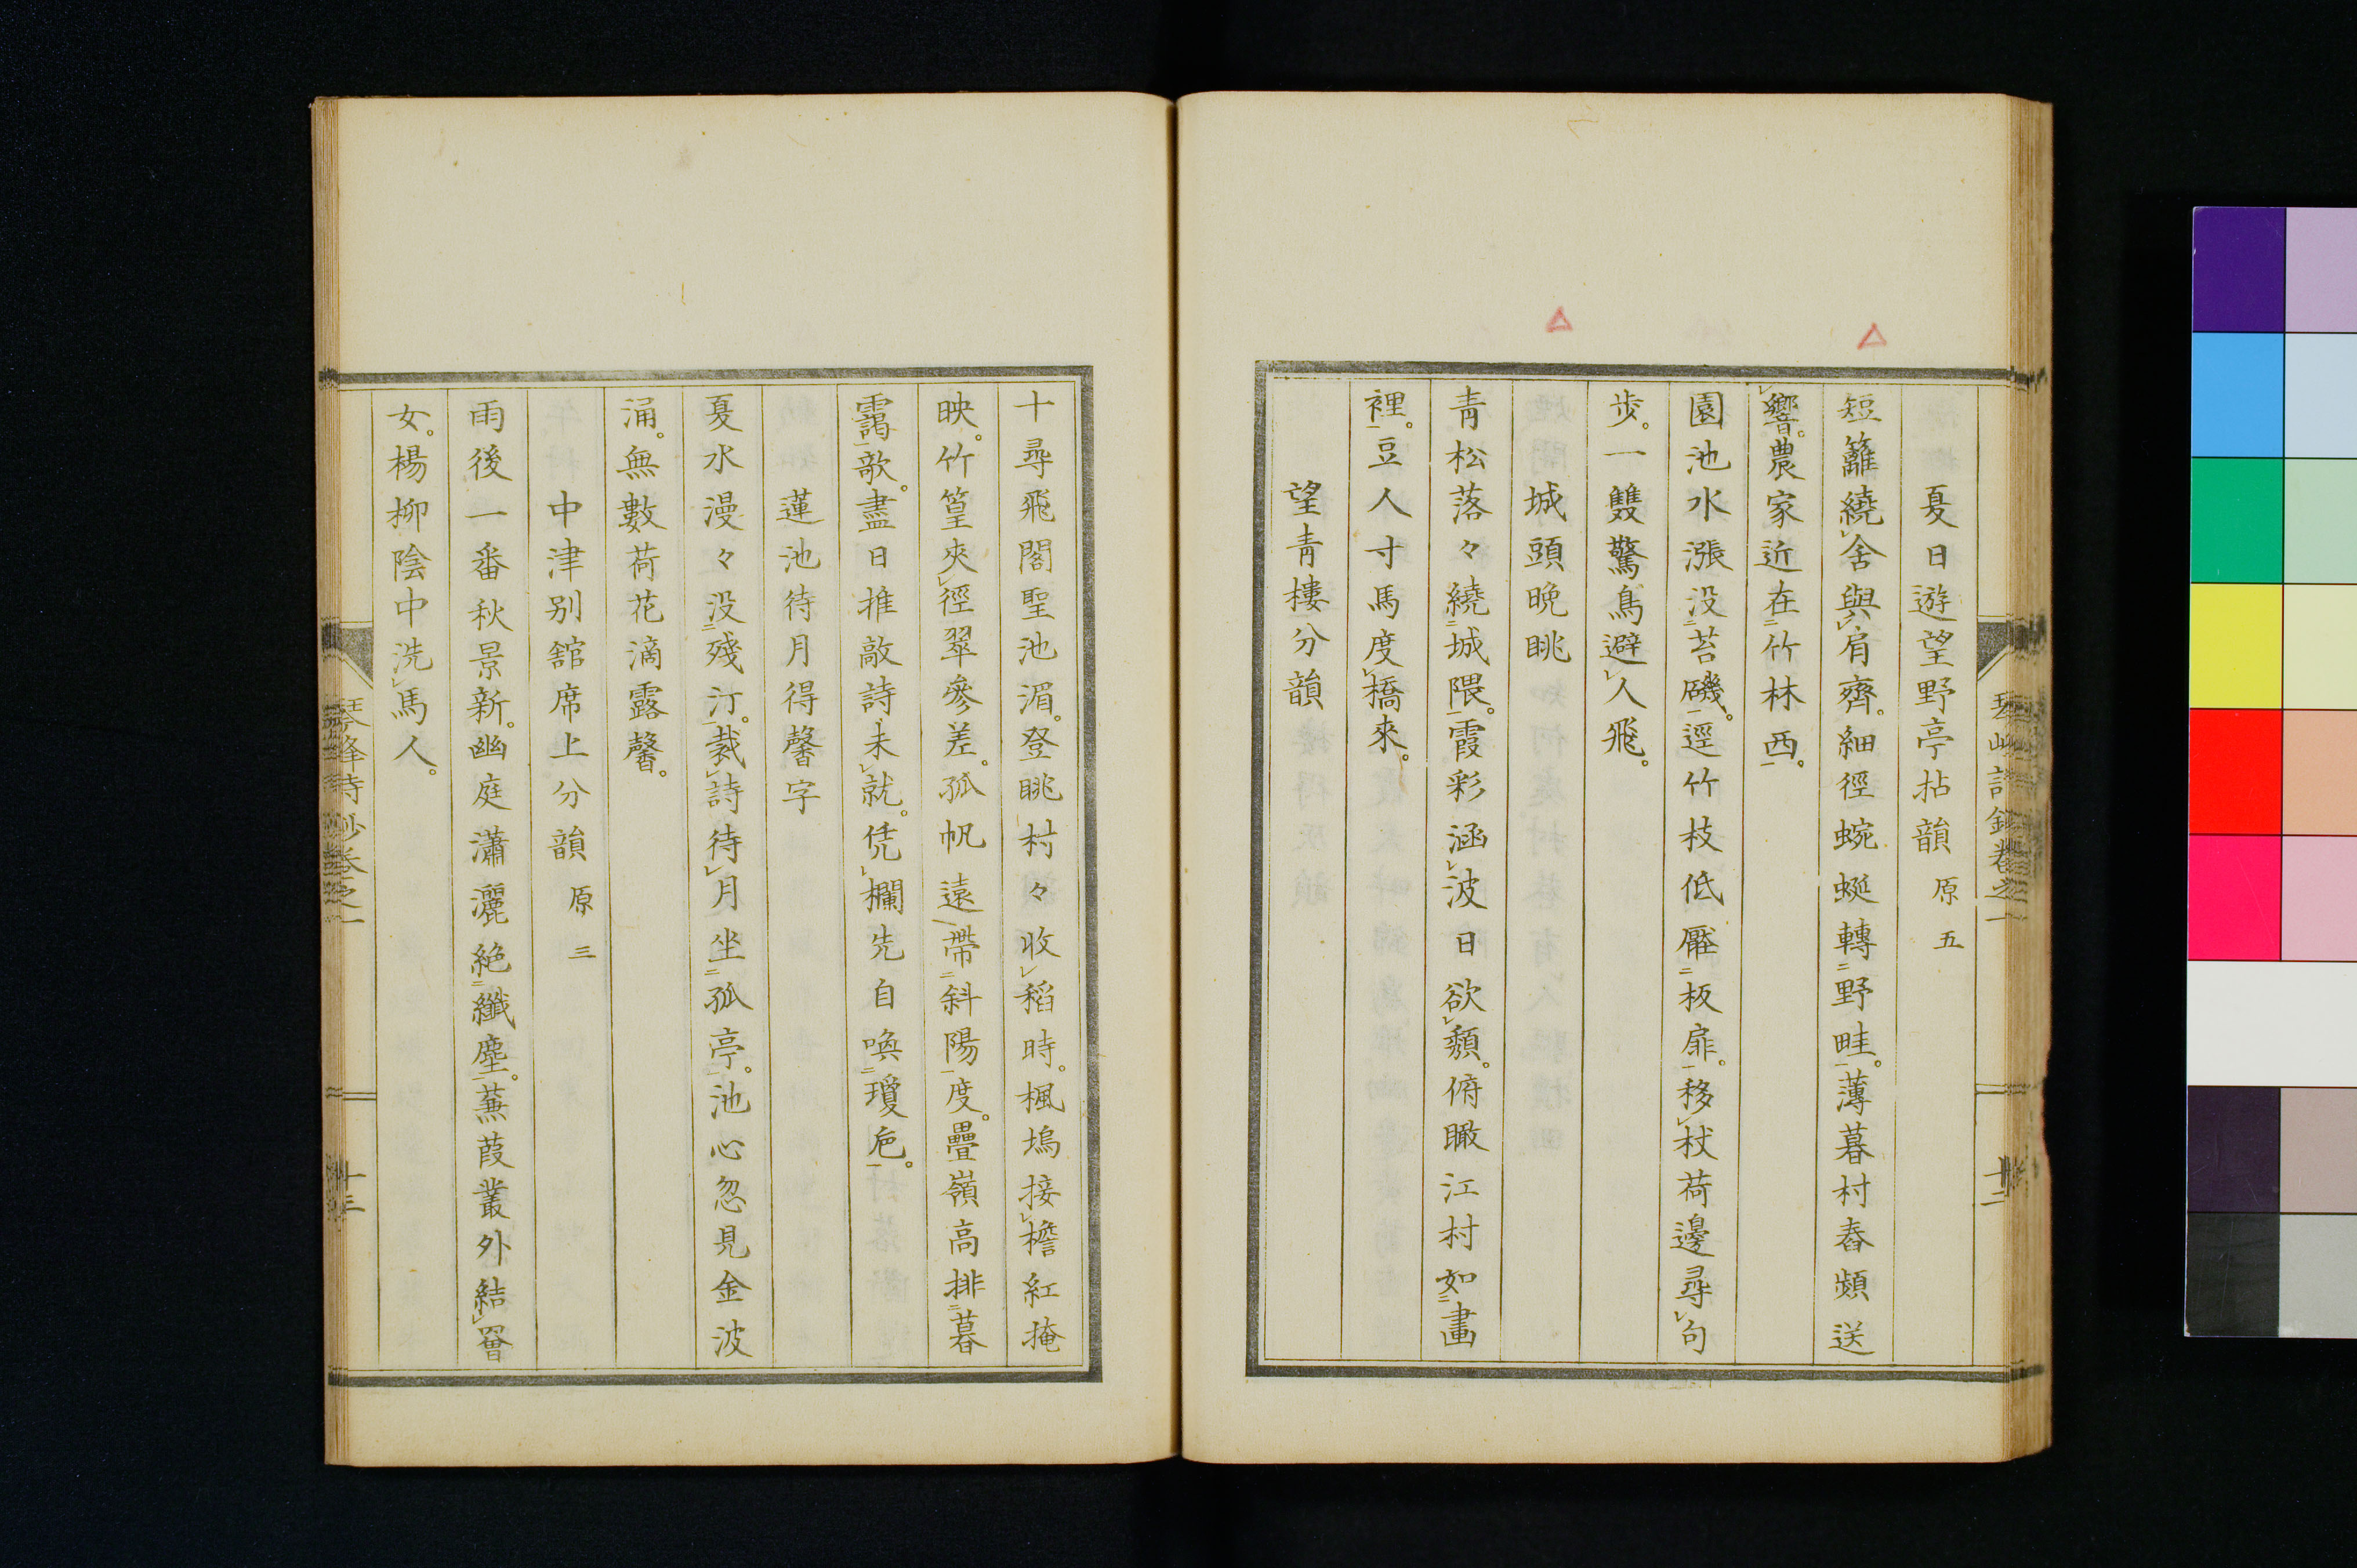 夏日遊望野亭拈韻 原五
短籬繞舍與肩齊。細徑蜿蜒轉野畦。薄暮村舂頻送
響。農家近在竹林西。
園池水漲没苔磯。逕竹枝低羅板扉。移杖荷邊尋句
步。一雙驚鳥避人飛。
城頭晩眺
青松落々繞城隈。霞彩涵波日欲頽。俯瞰江村如畫
裡。豆人寸馬度橋來。
望青樓分韻
十尋飛閣聖池湄。登眺村々收稻時。楓塢接檐紅掩
映。竹篁夾徑翠參差。孤帆遠帶斜陽度。疊嶺高排暮
靄欹。盡日推敲詩未就。凭欄先自喚瓊巵。
蓮池待月得馨字
夏水漫々没殘汀。裁詩待月坐孤亭。池心忽見金波
涌。無數荷花滴露馨。
中津別舘席上分韻 原三
雨後一番秋景新。幽庭瀟灑絶纖塵。蒹葭叢外結罾
女。楊柳陰中洗馬人。
琴峰詩鈔卷之一 十三